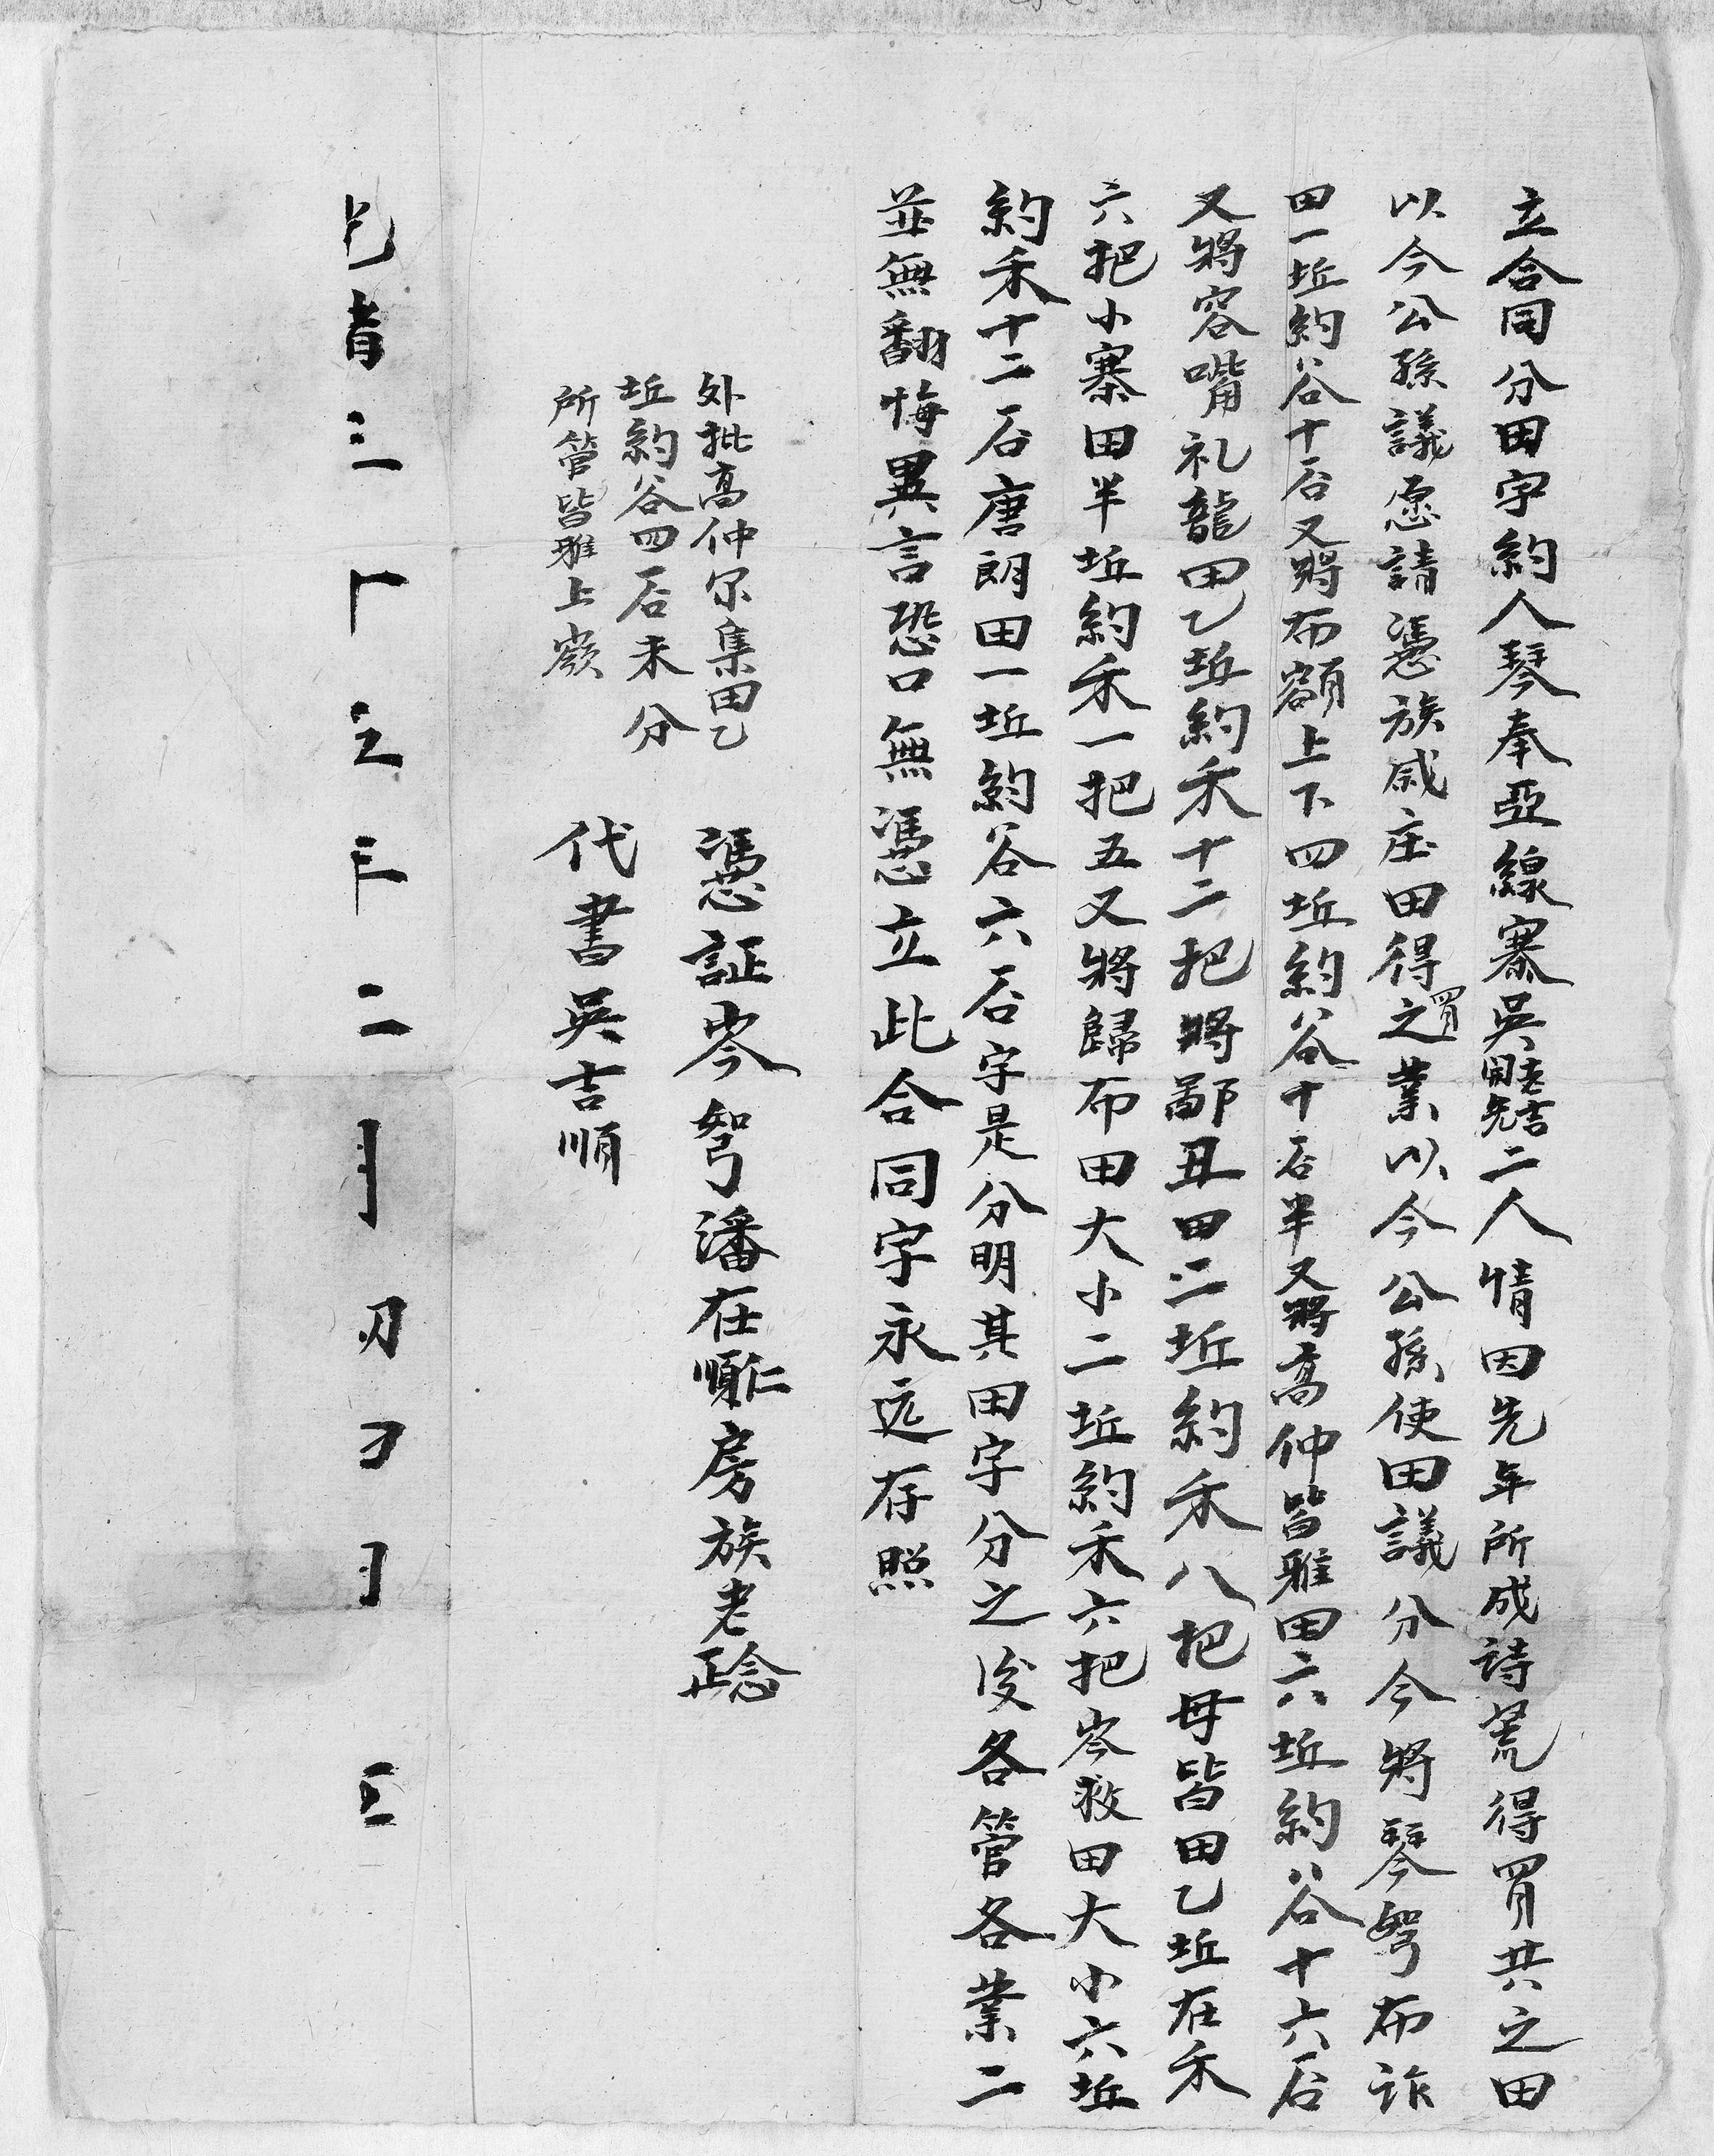 立合同分田字約人琴奉亞線寨吳開先老吉二人情因先年所成詩荒得買共之田
以今公孫議愿請憑族戚庄田得買之業以今公孫使田議分今將琴弩布詐
田一坵約谷十石又將布額上下四坵約谷十石半又將高仲皆雅田六坵約谷十六石
又將容嘴礼龍田乙坵約禾十二把將鄙丑田二坵約禾八把毋皆田乙坵在禾
六把小寨田半坵約禾一把五又將歸布田大小二坵約禾六把岑救田大小六坵
約禾十二石唐朗田一坵約谷六石字是分明其田字分之後各管各業二
並無翻悔異言恐口無憑立此合同字永远存照
外批高仲尔集田乙
坵約谷四石未分
所管皆雅上嶺
憑証岑弩潘在順仁房族老唸
代書吳吉順